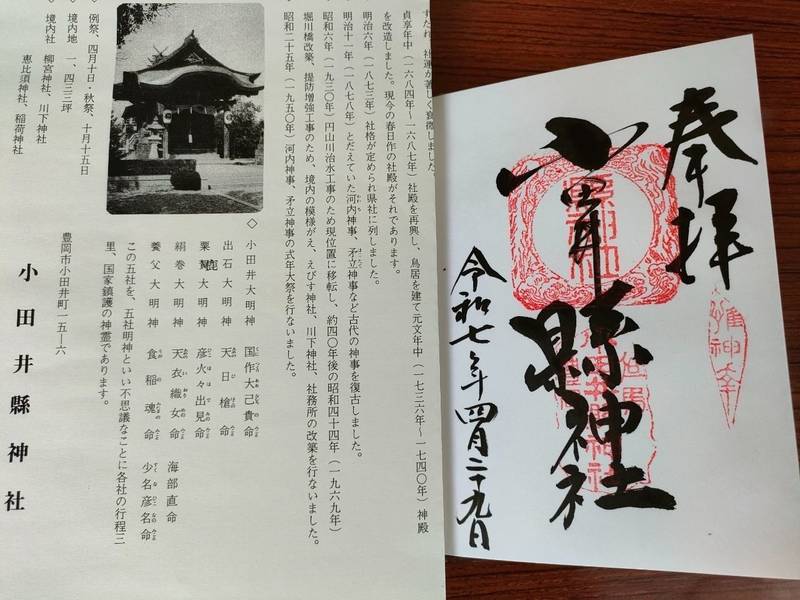 すたれ、社運が著しく衰微しました。
貞享年中(一六八四年~一六八七年)社殿を再興し、鳥居を建て元文年中(一七三六年~一七四〇年)神殿
を改造しました。現今の春日作の社殿がそれであります。
明治六年(一八七三年)社格が定められ県社に列しました。
明治十一年(一八七八年)とだえていた河内神事、矛立神事など古代の神事を復古しました。
昭和六年(一九三〇年)円山川治水工事のため現位置に移転し、約四〇年後の昭和四十四年(一九六九年)
堀川橋改築、提防増強工事のため、境内の模様がえ、えびす神社、川下神社、社務所の改築を行ないました。
昭和二十五年(一九五〇年)河内神事、矛立神事の式年大祭を行ないました。
◇
小田井大明神 国作大己貴命
出石大明神 天日槍命
粟鹿大明神 彦火々出見命
絹巻大明神 天衣織女命 海部直命
養父大明神 食稲魂命 少名彦名命
この五社を、五社明神といい不思議なことに各社の行程三
里、国家鎮護の神霊であります。
◇ 例祭、四月十日・秋祭、十月十五日
◇ 境内地 一、四三三坪
◇ 境内社 柳宮神社、川下神社
恵比須神社、稲荷神社
豊岡市小田井町一五―六
小田井縣神社
奉拝
小田井縣神社
令和七年四月二十九日